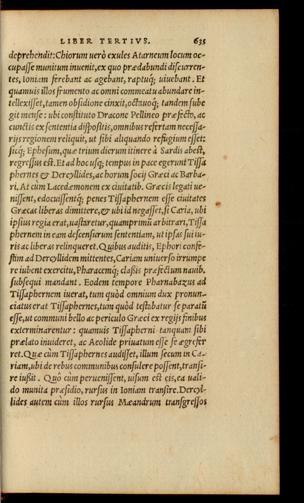 LIBER TERTIVS. 635
deprehendit: Chiorum uerò exules Atarneum locum oc-
cupasse munitum inuenit, ex quo prædabundi discurren-
tes, Ioniam ferebant ac agebant, raptuq́; uiuebant. Et
quamuis illos frumento ac omni commeatu abundare in-
tellexisset, tamen obsidione cinxit, octauoq́; tandem sube
git mense: ubi constituto Dracone Pellineo præfecto, ac
cunctis ex sententia dispositis, omnibus refertam necessa-
rijs regionem reliquit, ut sibi aliquando refugium esset:
sicq́; Ephesum, quæ trium dierum itinere à Sardis abest,
regressus est. Et ad hoc usq́; tempus in pace egerunt Tissa
phernes & Dercyllides, ac horum socij Græci ac Barba-
ri. At cum Lacedæmonem ex ciuitatib. Græcis legati ue-
nissent, edocuissentq́; penes Tissaphernem esse ciuitates
Græcas liberas dimittere, & ubi id negasset, si Caria, ubi
ipsius regia erat, uastaretur, quamprimùm arbitrari, Tissa
phernem in eam descensurum sententiam, ut ipsas sui iu-
ris ac liberas relinqueret. Quibus auditis, Ephori confe-
stim ad Dercyllidem mittentes, Cariam uniuerso irrumpe
re iubent exercitu, Pharacemq́; classis præfectum nauib.
subsequi mandant. Eodem tempore Pharnabazus ad
Tissaphernem iuerat, tum quòd omnium dux pronun-
ciatus erat Tissaphernes, tum quòd testabatur se paratũ
esse, ut communi bello ac periculo Græci ex regijs finibus
exterminarentur: quamuis Tissapherni tanquam sibi
prælato inuideret, ac Aeolide priuatum esse se ægrè fer
ret. Quæ cùm Tissaphernes audisset, illum secum in Ca-
riam, ubi de rebus communibus consulere possent, transi-
re iussit. Quò cùm peruenissent, uisum est eis, ea uali-
do munita præsidio, rursus in Ioniam transire. Dercyl-
lides autem cùm illos rursus Mæandrum transgressos